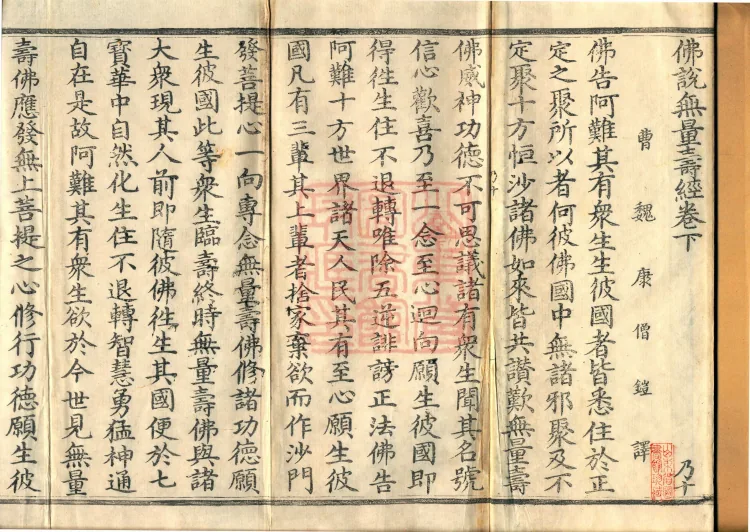 佛說無量壽經卷下 乃下
曹魏康僧鎧譯
佛告阿難其有衆生生彼國者皆悉住於正
定之聚所以者何彼佛國中無諸邪聚及不
定聚十方恒沙諸佛如來皆共讚歎無量壽
佛威神功德不可思議諸有衆生聞其名號
信心歡喜乃至一念至心迴向願生彼國即
得徃生住不退轉唯除五逆誹謗正法佛告
阿難十方世界諸天人民其有至心願生彼
國凡有三輩其上輩者捨家棄欲而作沙門
發菩提心一向專念無量壽佛修諸功德願
生彼國此等衆生臨壽終時無量壽佛與諸
大衆現其人前即隨彼佛徃生其國便於七
寳華中自然化生住不退轉智慧勇猛神通
自在是故阿難其有衆生欲於今世見無量
壽佛應發無上菩提之心修行功德願生彼